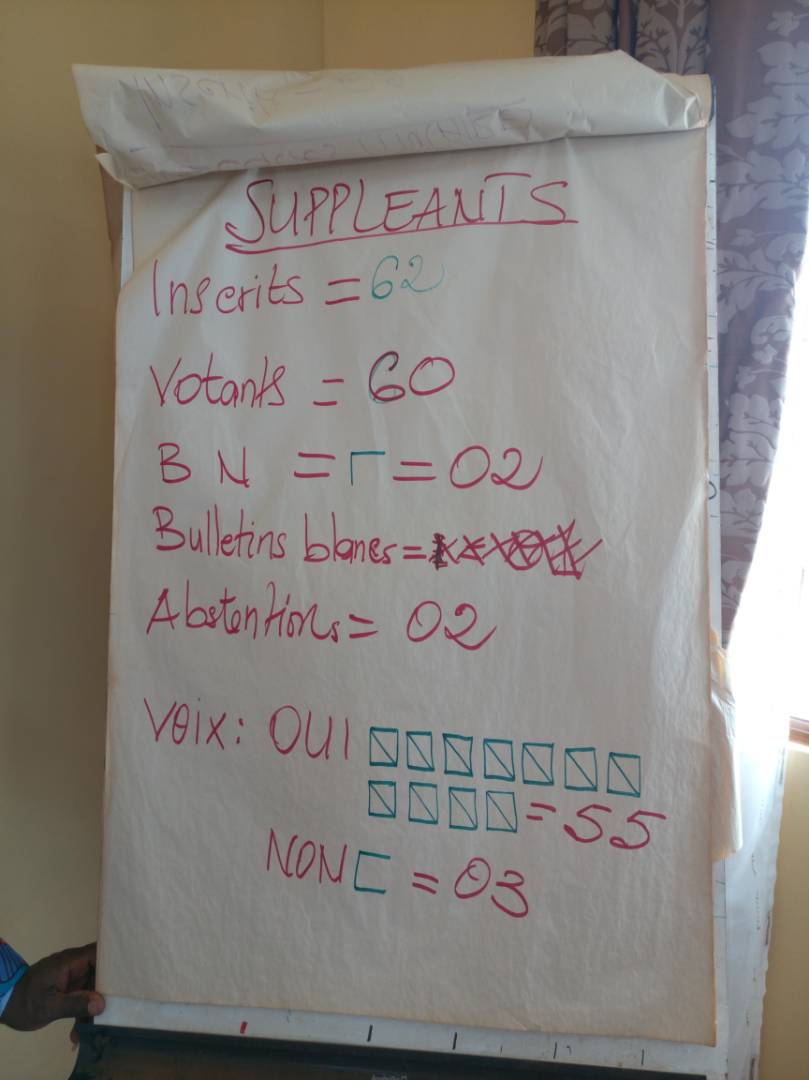 SUPPLEANTS
Inscrits = 62
Votants = 60
B N = = 02
Bulletins blancs =
Abstentions = 02
Voix: OUI
= 55
NON = 03